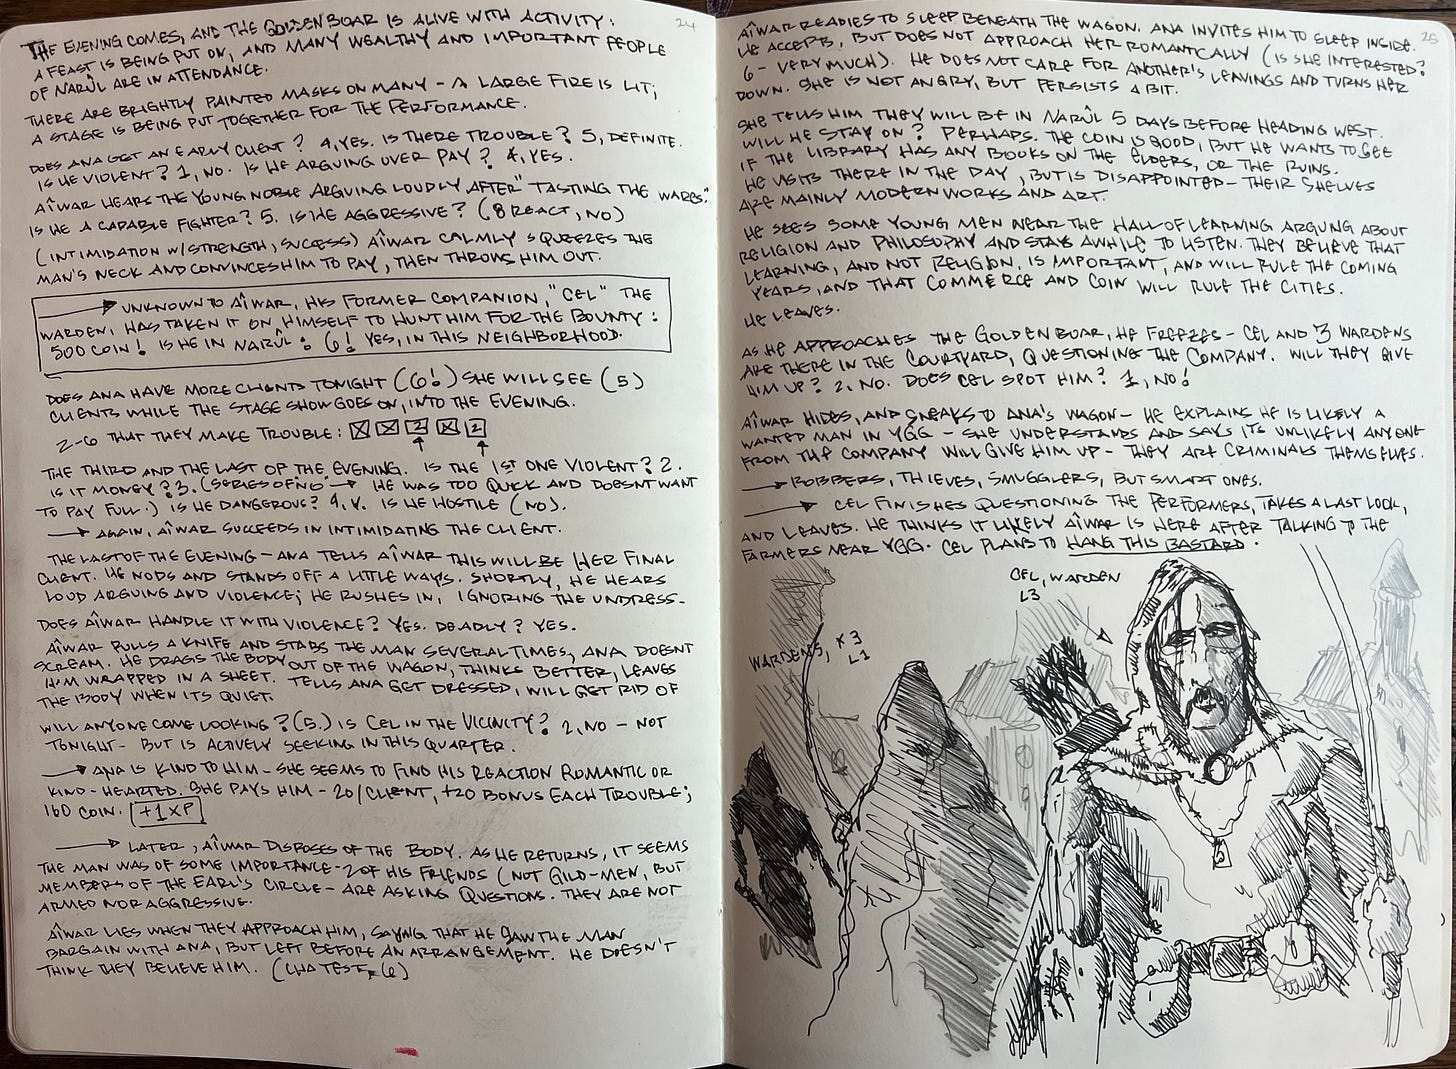 24
THE EVENING COMES, AND THE GOLDEN BOAR IS ALIVE WITH ACTIVITY:
A FEAST IS BEING PUT ON, AND MANY WEALTHY AND IMPORTANT PEOPLE
OF NARÛL ARE IN ATTENDANCE.
THERE ARE BRIGHTLY PAINTED MASKS ON MANY - A LARGE FIRE IS LIT;
A STAGE IS BEING PUT TOGETHER FOR THE PERFORMANCE.
DOES ANA GET AN EARLY CLIENT? 4, YES. IS THERE TROUBLE? 5, DEFINITE.
IS HE VIOLENT? 1, NO. IS HE ARGUING OVER PAY? 4, YES.
AÎWAR HEARS THE YOUNG NOBLE ARGUING LOUDLY AFTER "TASTING THE WARES."
IS HE A CAPABLE FIGHTER? 5. IS HE AGGRESSIVE? (8 REACT, NO)
(INTIMIDATION W/STRENGTH, SUCCESS) AÎWAR CALMLY SQUEEZES THE
MAN'S NECK AND CONVINCES HIM TO PAY, THEN THROWS HIM OUT.
UNKNOWN TO AÎWAR, HIS FORMER COMPANION, "CEL" THE
WARDEN, HAS TAKEN IT ON HIMSELF TO HUNT HIM FOR THE BOUNTY:
500 COIN! IS HE IN NARÛL: 6! YES, IN THIS NEIGHBORHOOD.
DOES ANA HAVE MORE CLIENTS TONIGHT (6!) SHE WILL SEE (5)
CLIENTS WHILE THE STAGE SHOW GOES ON, INTO THE EVENING.
2-6 THAT THEY MAKE TROUBLE: 2 2
THE THIRD AND THE LAST OF THE EVENING. IS THE 1ST ONE VIOLENT? 2.
IS IT MONEY? 3. (SERIES OF NO → HE WAS TOO QUICK AND DOESNT WANT
TO PAY FULL.) IS HE DANGEROUS? 4, Y. IS HE HOSTILE (NO).
→ AGAIN, AÎWAR SUCCEEDS IN INTIMIDATING THE CLIENT.
THE LAST OF THE EVENING - ANA TELLS AÎWAR THIS WILL BE HER FINAL
CLIENT. HE NODS AND STANDS OFF A LITTLE WAYS. SHORTLY, HE HEARS
LOUD ARGUING AND VIOLENCE; HE RUSHES IN, IGNORING THE UNDRESS.
DOES AÎWAR HANDLE IT WITH VIOLENCE? YES. DEADLY? YES.
AÎWAR PULLS A KNIFE AND STABS THE MAN SEVERAL TIMES, ANA DOESNT
SCREAM. HE DRAGS THE BODY OUT OF THE WAGON, THINKS BETTER, LEAVES
HIM WRAPPED IN A SHEET. TELLS ANA GET DRESSED, WILL GET RID OF
THE BODY WHEN ITS QUIET.
WILL ANYONE COME LOOKING? (5.) IS CEL IN THE VICINITY? 2, NO - NOT
TONIGHT - BUT IS ACTIVELY SEEKING IN THIS QUARTER.
→ ANA IS KIND TO HIM - SHE SEEMS TO FIND HIS REACTION ROMANTIC OR
KIND-HEARTED. SHE PAYS HIM - 20/CLIENT, +20 BONUS EACH TROUBLE;
160 COIN. +1 XP
→ LATER, AÎWAR DISPOSES OF THE BODY. AS HE RETURNS, IT SEEMS
THE MAN WAS OF SOME IMPORTANCE - 2 OF HIS FRIENDS (NOT GILD-MEN, BUT
MEMBERS OF THE EARL'S CIRCLE - ARE ASKING QUESTIONS. THEY ARE NOT
ARMED NOR AGGRESSIVE.
AÎWAR LIES WHEN THEY APPROACH HIM, SAYING THAT HE SAW THE MAN
BARGAIN WITH ANA, BUT LEFT BEFORE AN ARRANGEMENT. HE DOESN'T
THINK THEY BELIEVE HIM. (CHA TEST, 6)
25
AÎWAR READIES TO SLEEP BENEATH THE WAGON. ANA INVITES HIM TO SLEEP INSIDE.
HE ACCEPTS, BUT DOES NOT APPROACH HER ROMANTICALLY (IS SHE INTERESTED?
6 - VERY MUCH). HE DOES NOT CARE FOR ANOTHER'S LEAVINGS AND TURNS HER
DOWN. SHE IS NOT ANGRY, BUT PERSISTS A BIT.
SHE TELLS HIM THEY WILL BE IN NARÛL 5 DAYS BEFORE HEADING WEST.
WILL HE STAY ON? PERHAPS. THE COIN IS GOOD, BUT HE WANTS TO SEE
IF THE LIBRARY HAS ANY BOOKS ON THE ELDERS, OR THE RUINS.
HE VISITS THERE IN THE DAY, BUT IS DISAPPOINTED - THEIR SHELVES
ARE MAINLY MODERN WORKS AND ART.
HE SEES SOME YOUNG MEN NEAR THE HALL OF LEARNING ARGUING ABOUT
RELIGION AND PHILOSOPHY AND STAYS AWHILE TO LISTEN. THEY BELIEVE THAT
LEARNING, AND NOT RELIGION, IS IMPORTANT, AND WILL RULE THE COMING
YEARS, AND THAT COMMERCE AND COIN WILL RULE THE CITIES.
HE LEAVES.
AS HE APPROACHES THE GOLDEN BOAR, HE FREEZES - CEL AND 3 WARDENS
ARE THERE IN THE COURTYARD, QUESTIONING THE COMPANY. WILL THEY GIVE
HIM UP? 2, NO. DOES CEL SPOT HIM? 1, NO!
AÎWAR HIDES, AND SNEAKS TO ANA'S WAGON - HE EXPLAINS HE IS LIKELY A
WANTED MAN IN YGG - SHE UNDERSTANDS AND SAYS ITS UNLIKELY ANYONE
FROM THE COMPANY WILL GIVE HIM UP - THEY ARE CRIMINALS THEMSELVES.
→ ROBBERS, THIEVES, SMUGGLERS, BUT SMART ONES.
→ CEL FINISHES QUESTIONING THE PERFORMERS, TAKES A LAST LOOK,
AND LEAVES. HE THINKS IT LIKELY AÎWAR IS HERE AFTER TALKING TO THE
FARMERS NEAR YGG. CEL PLANS TO HANG THIS BASTARD.
CEL, WARDEN
L3
WARDENS, x3
L1